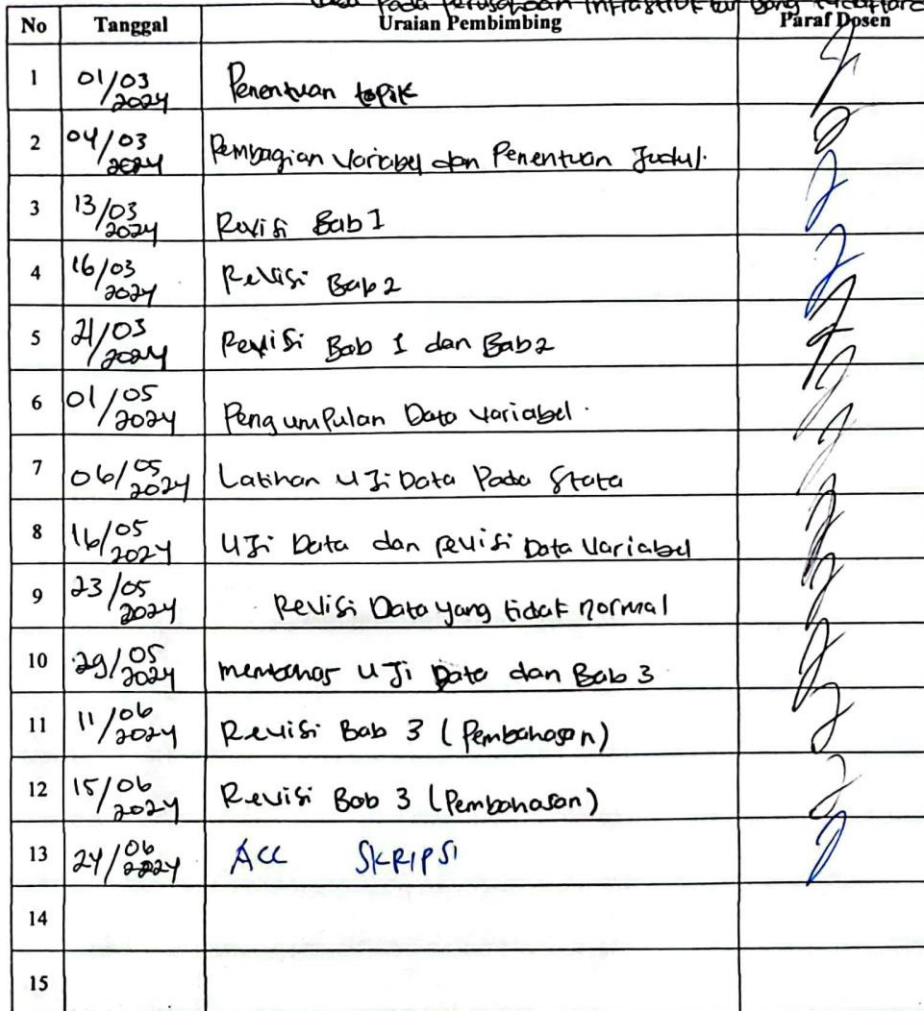 Pada Perusahaan Infrastruktur yang
No Tanggal Uraian Pembimbing Paraf Dosen
1 01/03 2024 Penentuan topik
2 04/03 2024 Pembagian Variabel dan Penentuan Judul.
3 13/03 2024 Revisi Bab 1
4 16/03 2024 Revisi Bab 2
5 21/03 2024 Revisi Bab 1 dan Bab 2
6 01/05 2024 Pengumpulan Data Variabel.
7 06/05 2024 Latihan Uji Data Pada Stata
8 16/05 2024 Uji Data dan revisi Data Variabel
9 23/05 2024 Revisi Data yang tidak normal
10 29/05 2024 membahas Uji Data dan Bab 3
11 11/06 2024 Revisi Bab 3 (Pembahasan)
12 15/06 2024 Revisi Bab 3 (Pembahasan)
13 24/06 2024 ACC SKRIPSI
14
15